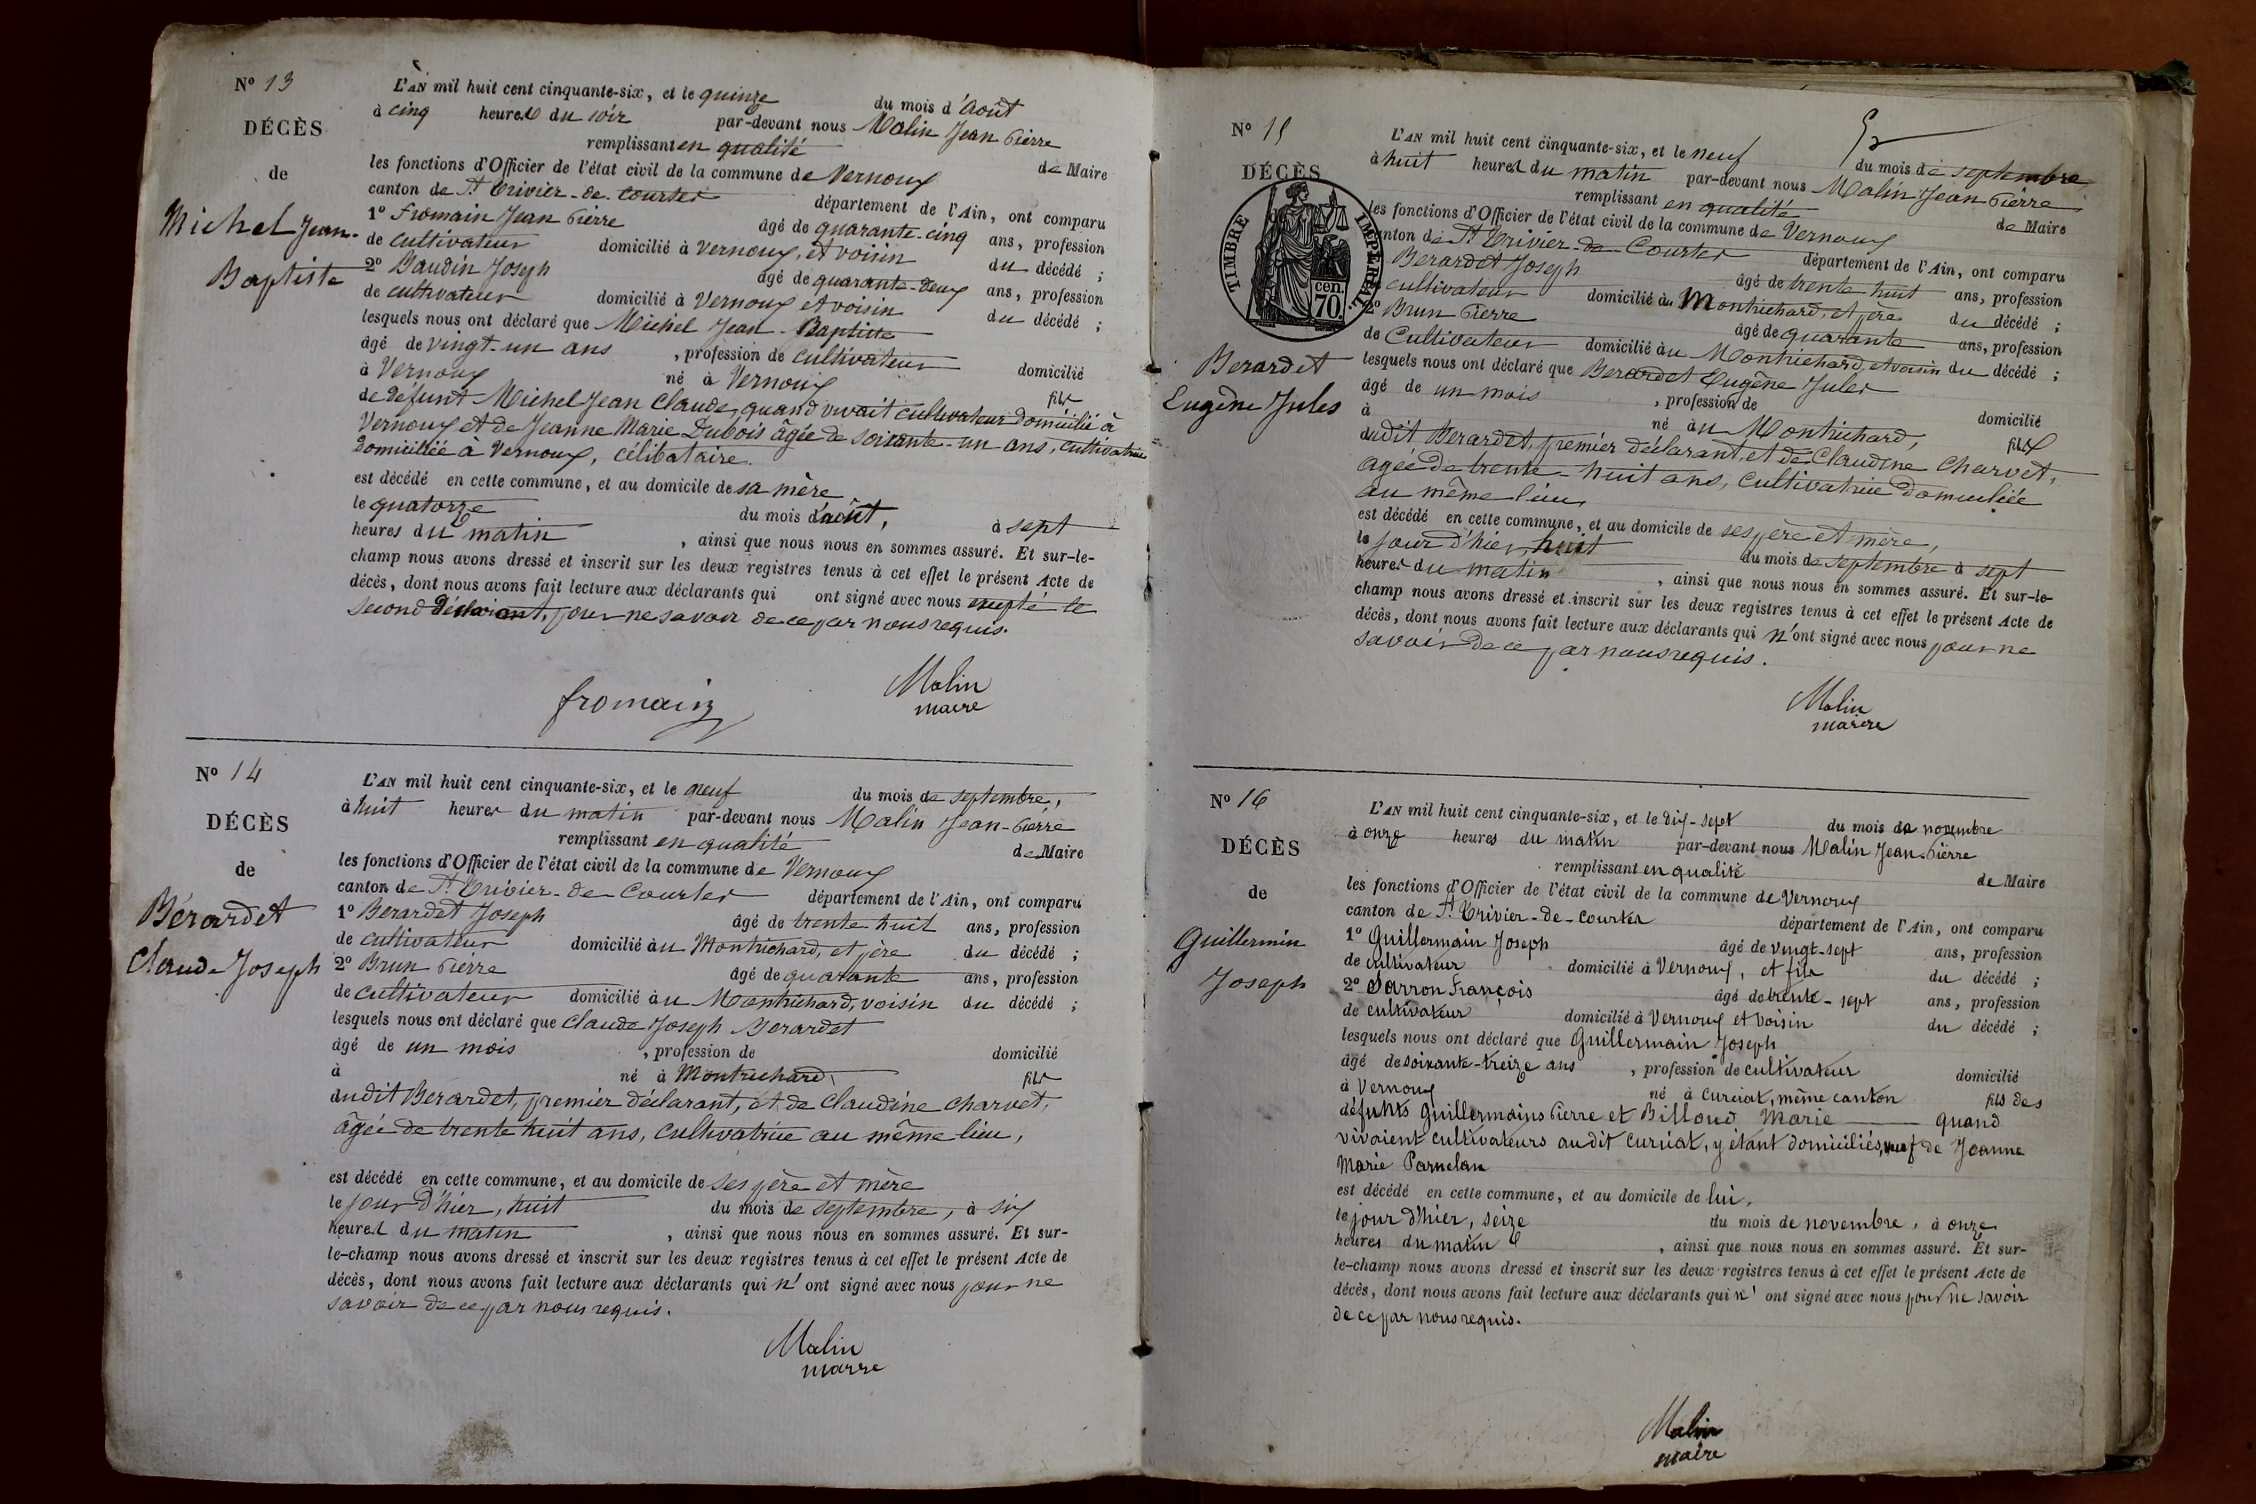 N° 13
DÉCÈS
de
Michel Jean-
Baptiste
L'AN mil huit cent cinquante-six, et le quinze du mois d'Août
à cinq heures du soir par-devant nous Malin Jean Pierre
remplissant en qualité de Maire
les fonctions d'Officier de l'état civil de la commune de Vernoux
canton de St Trivier-de-Courtes département de l'Ain, ont comparu
1° Fromain Jean Pierre âgé de quarante-cinq ans, profession
de cultivateur domicilié à Vernoux, et voisin du décédé ;
2° Baudin Joseph âgé de quarante-deux ans, profession
de cultivateur domicilié à Vernoux et voisin du décédé ;
lesquels nous ont déclaré que Michel Jean-Baptiste
âgé de vingt-un ans , profession de cultivateur domicilié
à Vernoux né à Vernoux fils
de défunt Michel Jean Claude, quand vivait cultivateur domicilié à
Vernoux et de Jeanne Marie Dubois âgée de soixante-un ans, cultivatrice
domiciliée à Vernoux, célibataire.
est décédé en cette commune, et au domicile de sa mère
le quatorze du mois d'août, à sept
heures du matin , ainsi que nous nous en sommes assuré. Et sur-le-
champ nous avons dressé et inscrit sur les deux registres tenus à cet effet le présent Acte de
décès, dont nous avons fait lecture aux déclarants qui ont signé avec nous excepté le
second déclarant, pour ne savoir de ce par nous requis.
fromain
Malin
maire
N° 14
DÉCÈS
de
Bérardet
Claude Joseph
L'AN mil huit cent cinquante-six, et le neuf du mois de septembre,
à huit heures du matin par-devant nous Malin Jean-Pierre
remplissant en qualité de Maire
les fonctions d'Officier de l'état civil de la commune de Vernoux
canton de St Trivier-de-Courtes département de l'Ain, ont comparu
1° Berardet Joseph âgé de trente huit ans, profession
de cultivateur domicilié au Montrichard, et père du décédé ;
2° Brun Pierre âgé de quarante ans, profession
de cultivateur domicilié au Montrichard, voisin du décédé ;
lesquels nous ont déclaré que Claude Joseph Berardet
âgé de un mois , profession de domicilié
à né à Montrichard, fils
dudit Berardet, premier déclarant, et de Claudine Charvet,
âgée de trente huit ans, cultivatrice au même lieu,
est décédé en cette commune, et au domicile de ses père et mère
le jour d'hier, huit du mois de septembre, à six
heures du matin , ainsi que nous nous en sommes assuré. Et sur-
le-champ nous avons dressé et inscrit sur les deux registres tenus à cet effet le présent Acte de
décès, dont nous avons fait lecture aux déclarants qui n'ont signé avec nous pour ne
savoir de ce par nous requis.
Malin
maire
N° 15
DÉCÈS
TIMBRE IMPÉRIAL
cen.
70.
Berardet
Eugène Jules
L'AN mil huit cent cinquante-six, et le neuf du mois de septembre
à huit heures du matin par-devant nous Malin Jean Pierre
remplissant en qualité de Maire
les fonctions d'Officier de l'état civil de la commune de Vernoux
canton de St Trivier-de-Courtes département de l'Ain, ont comparu
Berardet Joseph âgé de trente huit ans, profession
cultivateur domicilié au Montrichard, et père du décédé ;
2° Brun Pierre âgé de quarante ans, profession
de Cultivateur domicilié au Montrichard, et voisin du décédé ;
lesquels nous ont déclaré que Berardet Eugène Jules
âgé de un mois , profession de
à né au Montrichard, domicilié
dudit Berardet, premier déclarant, et de Claudine Charvet, fils
agée de trente-huit ans, cultivatrice domiciliée
au même lieu,
est décédé en cette commune, et au domicile de ses père et mère,
le jour d'hier, huit du mois de septembre à sept
heures du matin , ainsi que nous nous en sommes assuré. Et sur-le-
champ nous avons dressé et inscrit sur les deux registres tenus à cet effet le présent Acte de
décès, dont nous avons fait lecture aux déclarants qui n'ont signé avec nous pour ne
savoir de ce par nous requis.
Malin
maire
N° 16
DÉCÈS
de
Guillermin
Joseph
L'AN mil huit cent cinquante-six, et le dix-sept du mois de novembre
à onze heures du matin par-devant nous Malin Jean-Pierre
remplissant en qualité de Maire
les fonctions d'Officier de l'état civil de la commune de Vernoux
canton de St Trivier-de-Courtes département de l'Ain, ont comparu
1° Guillermain Joseph âgé de vingt-sept ans, profession
de cultivateur domicilié à Vernoux, et fils du décédé ;
2° Sarron François âgé de trente-sept ans, profession
de cultivateur domicilié à Vernoux et voisin du décédé ;
lesquels nous ont déclaré que Guillermain Joseph
âgé de soixante-treize ans , profession de cultivateur domicilié
à Vernoux né à Curciat, même canton fils des
défunts Guillermains Pierre et Billoud Marie quand
vivaient cultivateurs au dit Curciat, y étant domiciliés, veuf de Jeanne
Marie Parnelan
est décédé en cette commune, et au domicile de lui,
le jour d'hier, seize du mois de novembre, à onze
heures du matin , ainsi que nous nous en sommes assuré. Et sur-
le-champ nous avons dressé et inscrit sur les deux registres tenus à cet effet le présent Acte de
décès, dont nous avons fait lecture aux déclarants qui n'ont signé avec nous pour ne savoir
de ce par nous requis.
Malin
maire